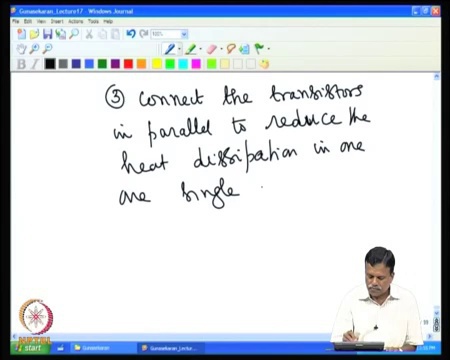 Gunasekaran_Lecture17 - Windows Journal
File Edit View Insert Actions Tools Help
③ Connect the transistors
in parallel to reduce the
heat dissipation in one
one single
start
Gunasekaran
Gunasekaran_Lectu...